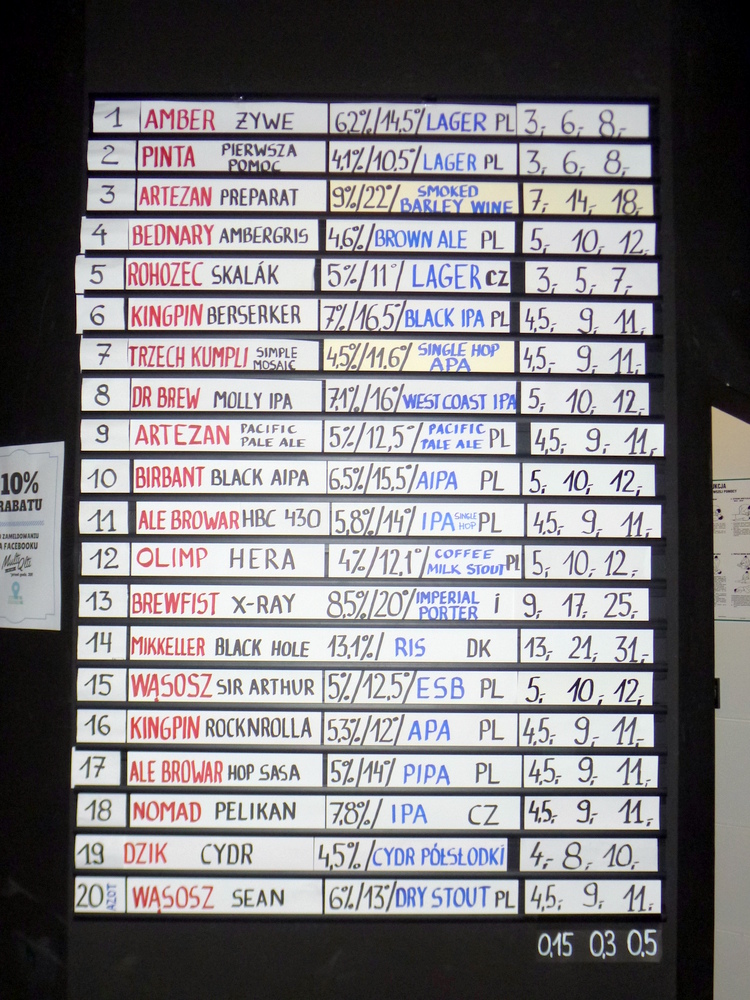 1 AMBER ŻYWE 6,2%/14,5°/LAGER PL 3,- 6,- 8,-
2 PINTA PIERWSZA POMOC 4,1%/10,5°/LAGER PL 3,- 6,- 8,-
3 ARTEZAN PREPARAT 9%/22°/SMOKED BARLEY WINE 7,- 14,- 18,-
4 BEDNARY AMBERGRIS 4,6%/BROWN ALE PL 5,- 10,- 12,-
5 ROHOZEC SKALÁK 5%/11°/LAGER CZ 3,- 5,- 7,-
6 KINGPIN BERSERKER 7%/16,5°/BLACK IPA PL 4,5,- 9,- 11,-
7 TRZECH KUMPLI SIMPLE MOSAIC 4,5%/11.6°/SINGLE HOP APA 4,5,- 9,- 11,-
8 DR BREW MOLLY IPA 7,1%/16°/WEST COAST IPA 5,- 10,- 12,-
9 ARTEZAN PACIFIC PALE ALE 5%/12,5°/PACIFIC PALE ALE PL 4,5,- 9,- 11,-
10 BIRBANT BLACK AIPA 6.5%/15,5°/AIPA PL 5,- 10,- 12,-
11 ALE BROWAR HBC 430 5,8%/14°/IPA SINGLE HOP PL 4,5,- 9,- 11,-
12 OLIMP HERA 4%/12,1°/COFFEE MILK STOUT PL 5,- 10,- 12,-
13 BREWFIST X-RAY 8,5%/20°/IMPERIAL PORTER I 9,- 17,- 25,-
14 MIKKELLER BLACK HOLE 13,1%/RIS DK 13,- 21,- 31,-
15 WĄSOSZ SIR ARTHUR 5%/12,5°/ESB PL 5,- 10,- 12,-
16 KINGPIN ROCKNROLLA 5,3%/12°/APA PL 4,5,- 9,- 11,-
17 ALE BROWAR HOP SASA 5%/14°/PIPA PL 4,5,- 9,- 11,-
18 NOMAD PELIKAN 7,8%/IPA CZ 4,5,- 9,- 11,-
19 DZIK CYDR 4,5%/CYDR PÓŁSŁODKI 4,- 8,- 10,-
20 AZOT WĄSOSZ SEAN 6%/13°/DRY STOUT PL 4,5,- 9,- 11,-
0,15 0,3 0,5
10%
RABATU
ZAMELDOWANIU
FACEBOOKU